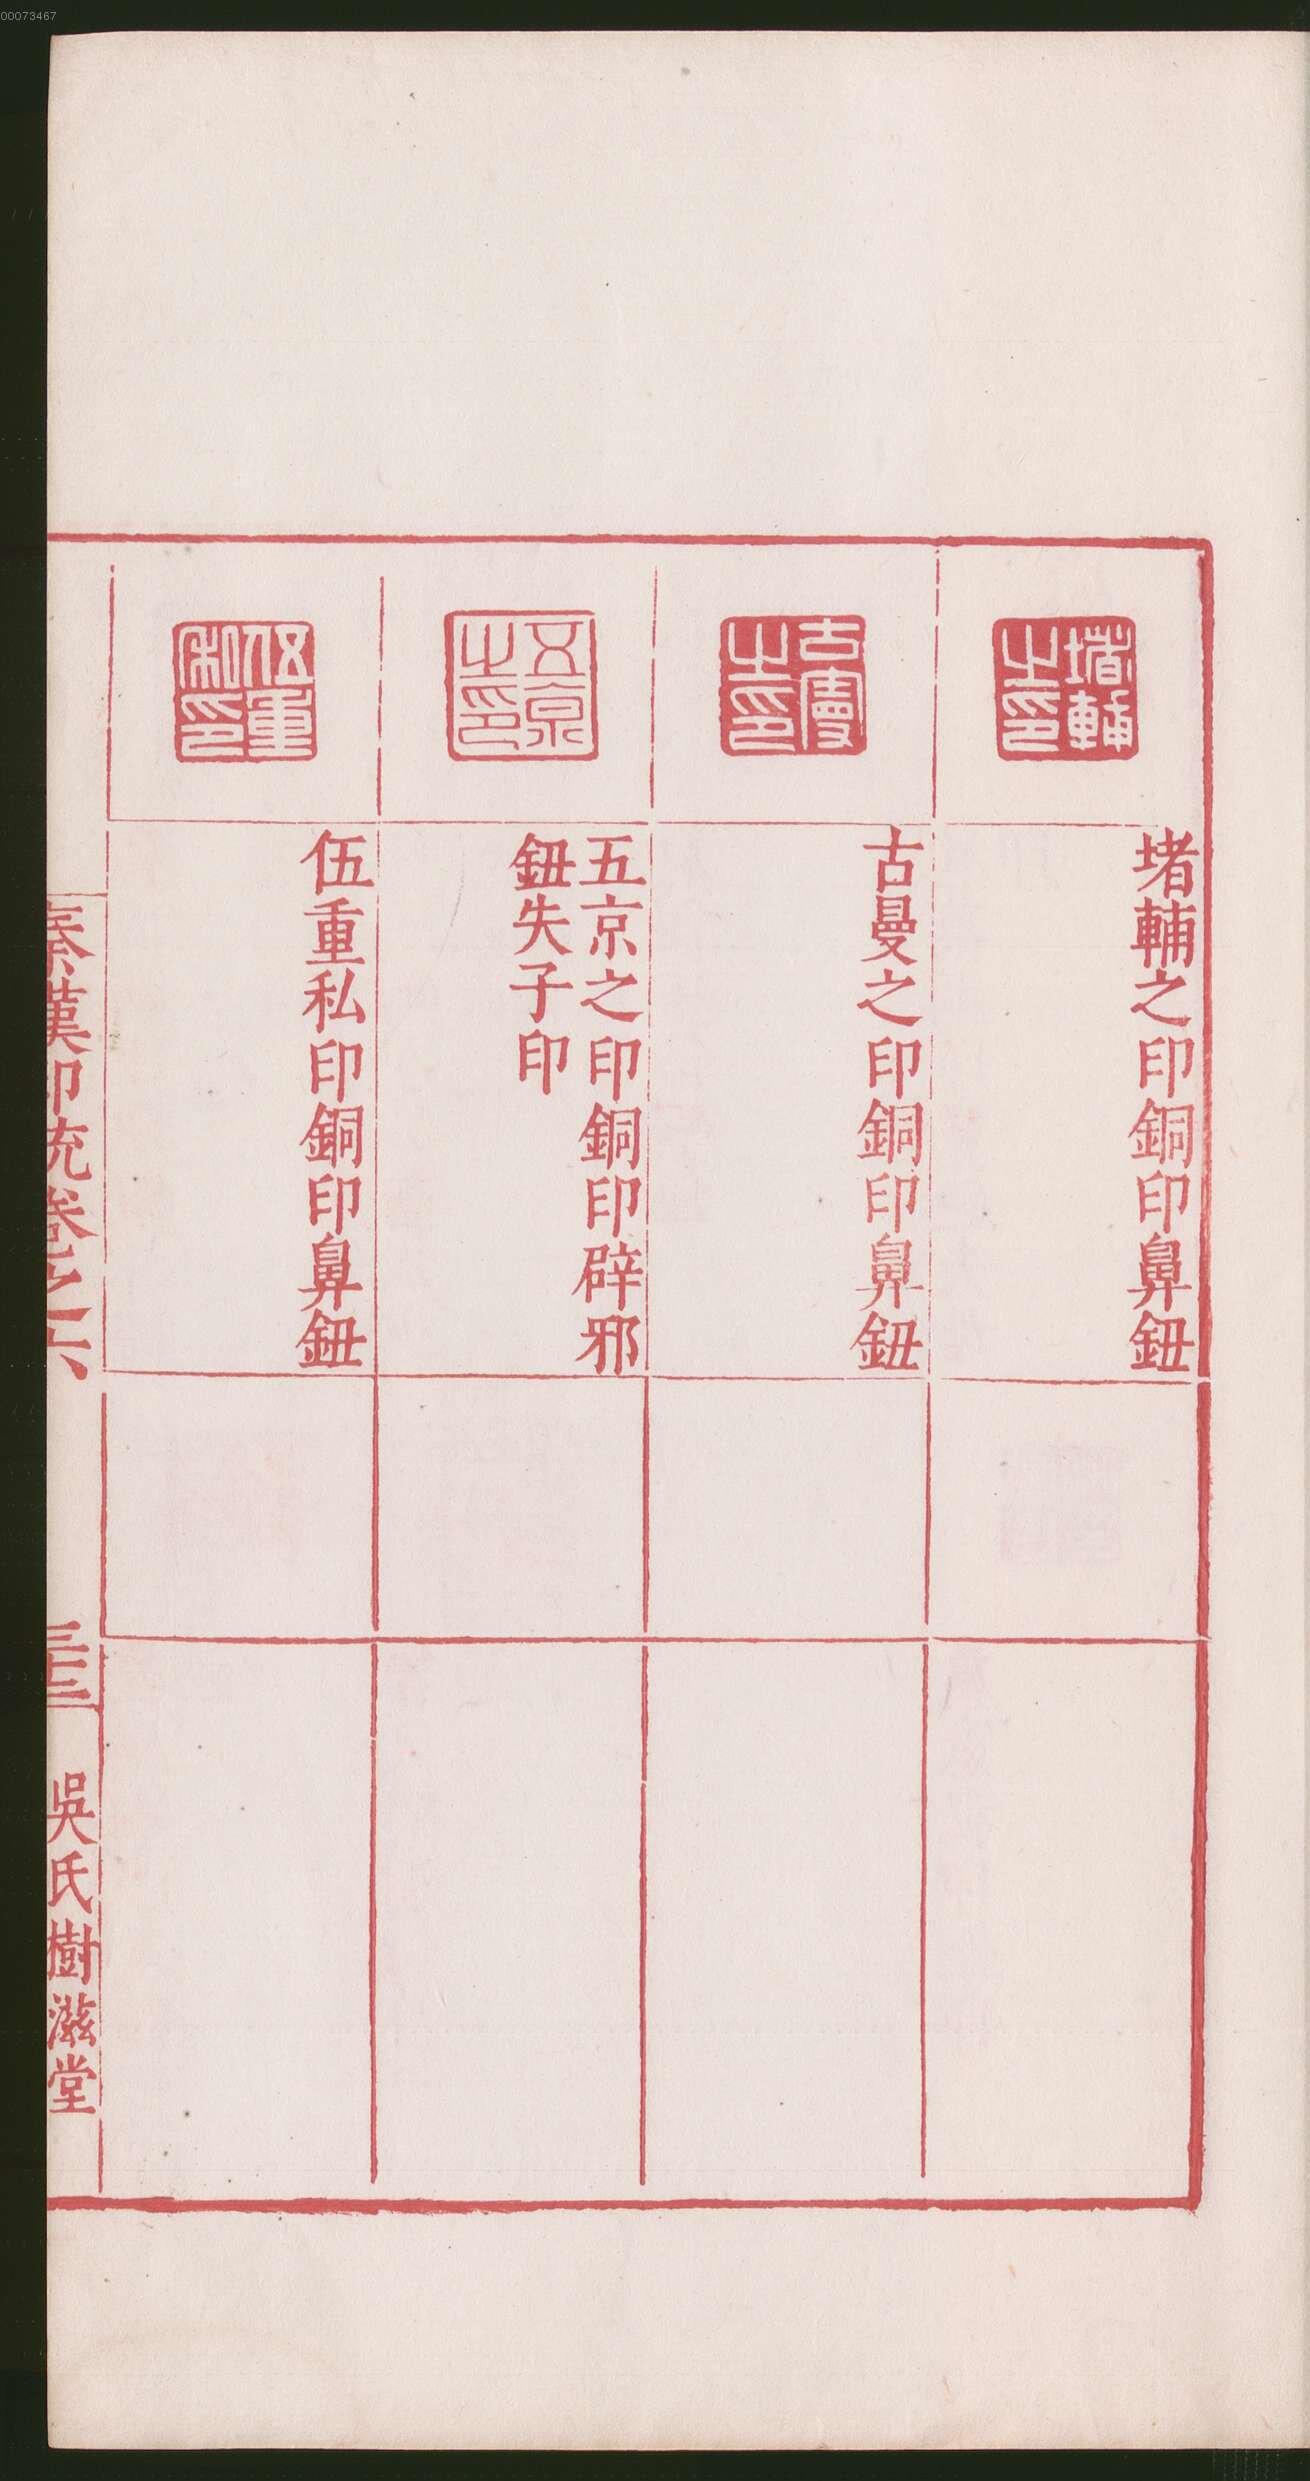 00073467
堵輔之印
堵輔之印銅印鼻鈕
古曼之印
古曼之印銅印鼻鈕
五京之印
五京之印銅印辟邪
鈕失子印
伍重私印
伍重私印銅印鼻鈕
秦漢印統卷之六
三十三
吳氏樹滋堂